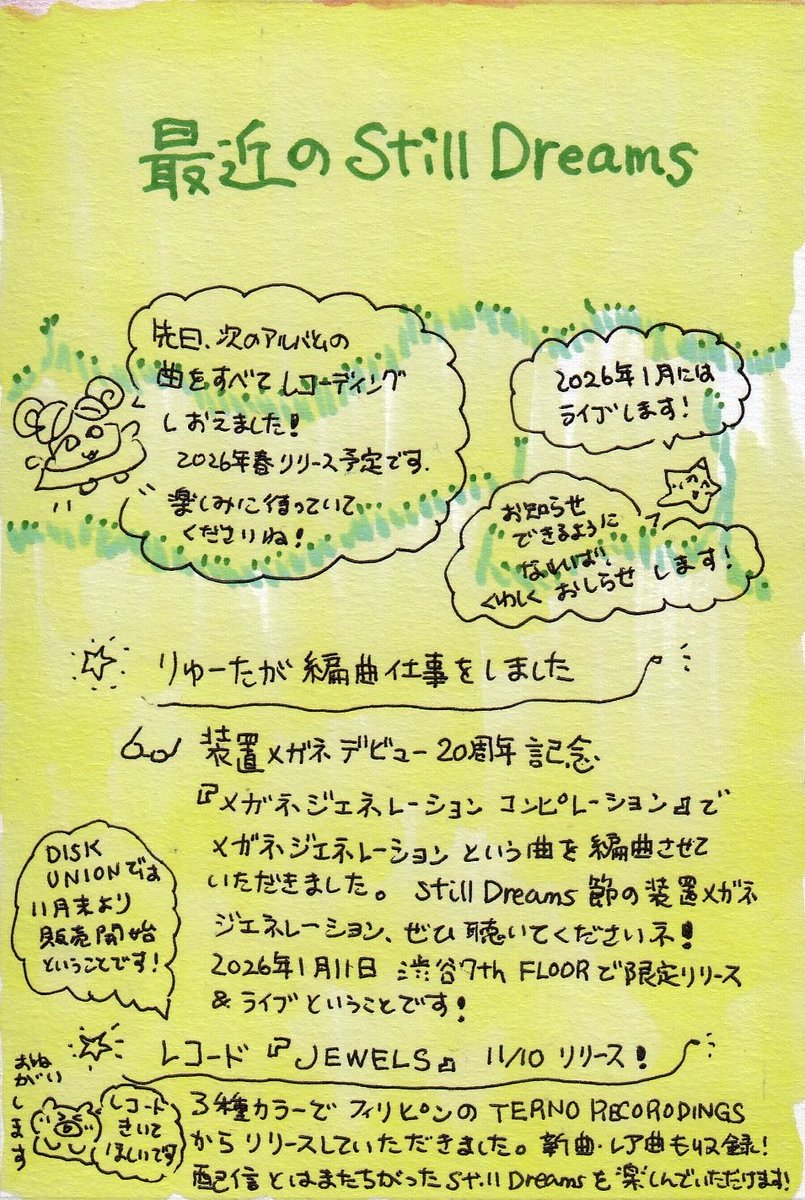 最近のStill Dreams
先日、次のアルバムの
曲をすべてレコーディング
しおえました!
2026年春リリース予定です.
楽しみに待っていて
くださいね!
2026年1月には
ライブします!
お知らせ
できるように
なれば、
くわしく おしらせ します!
りゅーたが編曲仕事をしました
装置メガネデビュー20周年記念
『メガネジェネレーション コンピレーション』で
メガネジェネレーションという曲を編曲させて
いただきました。 Still Dreams節の装置メガネ
ジェネレーション、ぜひ聴いてくださいネ!
2026年1月11日 渋谷7th FLOORで限定リリース
&ライブということです!
DISK
UNIONでは
11月末より
販売開始
ということです!
レコード『JEWELS』 11/10 リリース!
おねがいします
レコード
きいて
ほしいです
3種カラーでフィリピンのTERNO RECORODINGS
からリリースしていただきました。新曲・レア曲も収録!
配信とはまたちがったStill Dreamsを楽しんでいただけます!